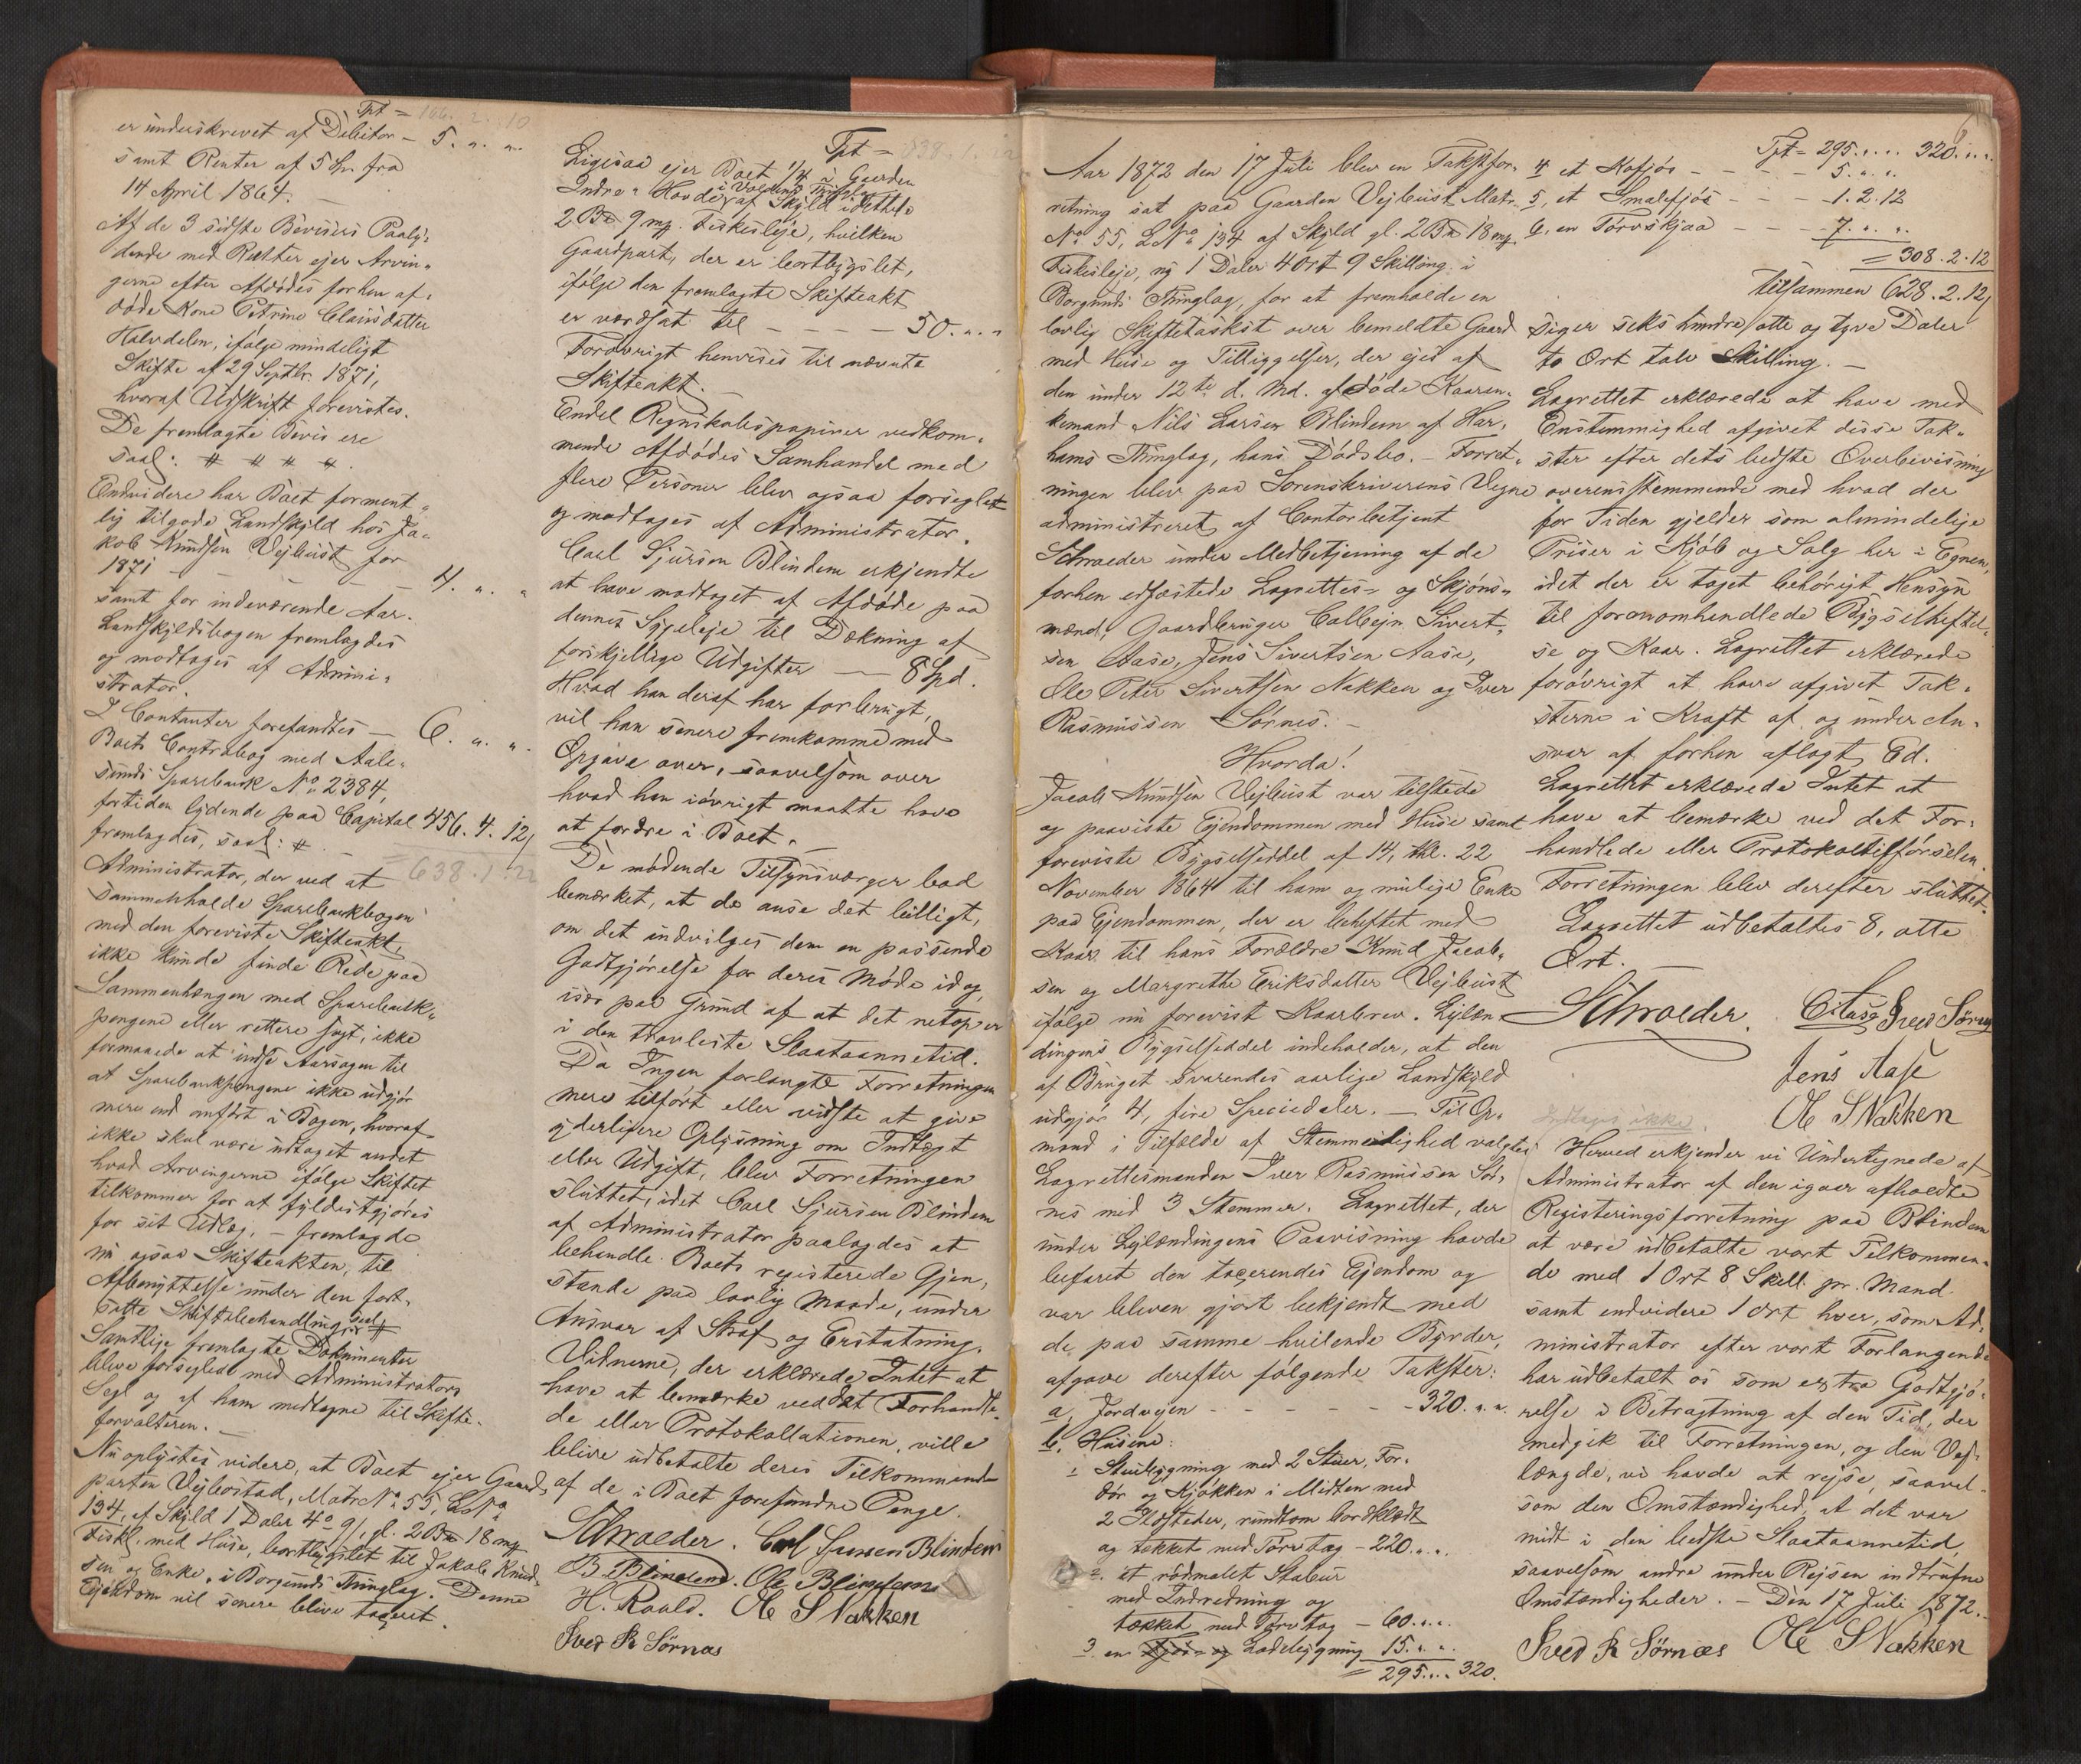 Tpt = 166. 2. 10
er underskrevet af Debitor – 5. „ „
samt Renter af 5 %. fra
14 April 1864. –
Af de 3 sidste Bevisers Paaly-
dende med Renter ejer Arvin-
gerne efter Afdødes forhen af-
døde Kone Petrine Clausdatter
Halvdelen, ifølge mindeligt
Skifte af 29 Septbr. 1871,
hvoraf Udskrift forevistes.
De fremlagte Bevis ere
saal: # # # #.
Endvidere har Boet forment-
lig tilgode Landskyld hos Ja-
kob Knudsen Vejbust for
1871 – – – – 4. „ „
samt for indeværende Aar.
Landskyldsbogen fremlagdes
og modtages af Admini-
strator.
I Contanter forefandtes – 6. „ „
Boets Contrabog med Aale-
sunds Sparebank No 2384,
fortiden lydende paa Capital 456. 4. 12,
fremlagdes, saal: #
638. 1. 22
Administrator, der ved at
sammenholde Sparebankbogen
med den foreviste Skifteakt,
ikke kunde finde Rede paa
Sammenhængen med Sparebank-
pengene eller rettere sagt, ikke
formaaede at indse Aarsagen til
at Sparebankpengene ikke udgjør
mere end anført i Bogen, hvoraf
ikke skal være udtaget andet
hvad Arvingerne ifølge Skiftet
tilkommer for at fyldestgjøres
for sit Udlæg, – fremlagde
nu ogsaa Skifteakten, til
Afbenyttelse under den fort-
satte Skiftebehandling, saal: #
Samtlige fremlagte Dokumenter
bleve forseglede med Administrators
Segl og af ham medtagne til Skifte-
forvalteren. –
Nu oplystes videre, at Boet ejer Gaard-
parten Vejbostad, Matr No 55, L No
134, af Skyld 1 Daler 4o 9/, gl. 2 Bd 18 mg
Fiskl. med Huse, bortbygslet til Jakob Knud-
sen og Enke, i Borgunds Thinglag. Denne
Ejendom vil senere blive taxeret.
Tpt = 638. 1. 22
Ligesaa ejer Boet 1/4 i Gaarden
Indre-Hovde i Voldens Thinglag af Skyld idethele
2 Bd 9 mg. Fiskesleje, hvilken
Gaardpart, der er bortbygslet,
ifølge den fremlagte Skifteakt
er værdsat til – – – – 50. „ „
Forøvrigt henvises til nævnte
Skifteakt. –
Endel Regnskabspapirer vedkom-
mende Afdødes Samhandel med
flere Personer blev ogsaa forseglet
og modtages af Administrator.
Carl Sjursen Blindem erkjendte
at have modtaget af Afdøde paa
dennes Sygeleje til Dækning af
forskjellige Udgifter – 8 Spd.
Hvad han deraf har forbrugt,
vil han senere fremkomme med
Opgave over, saavelsom over
hvad han iøvrigt maatte have
at fordre i Boet. –
De mødende Tilsynsværger bad
bemærket, at de anse det billigt,
om det indvilges dem en passende
Godtgjørelse for deres Møde idag,
især paa Grund af at det netop er
i den travleste Slaataannetid.
Da Ingen forlangte Forretningen
mere tilført eller vidste at give
yderligere Oplysning om Indtægt
eller Udgift, blev Forretningen
sluttet, idet Carl Sjursen Blindem
af Administrator paalagdes at
behandle Boets registerede Gjen-
stande paa lovlig Maade, under
Ansvar af Straf og Erstatning.
Vidnerne, der erklærede Intet at
have at bemærke ved det Forhandle-
de eller Protokollationen, ville
blive udbetalte deres Tilkommende
af de i Boet forefundne Penge.
Schroeder. Carl Sjursen Blindem
B. Blindem. Ole Blindem
H. Roald. Ole S Nakken
Iver R Sörnæs
Aar 1872 den 17 Juli blev en Takstfor-
retning sat paa Gaarden Vejbust Matr.
No 55, L No 134 af Skyld gl. 2 Bd 18 mg
Fiskesleje, ny 1 Daler 4 Ort 9 Skilling i
Borgunds Thinglag, for at fremholde en
lovlig Skiftetaxst over bemeldte Gaard
med Huse og Tilliggelser, der ejes af
den under 12te d. Md. afdøde Kaaren-
kemand Nils Larsen Blindem af Har-
hams Thinglag, hans Dødsbo. – Forret-
ningen blev paa Sorenskriverens Vegne
administreret af Contorbetjent
Schroeder under Medbetjening af de
forhen edfæstede Lagrettes- og Skjøns-
mænd, Gaardbruger Colbejn Sivert-
sen Aase, Jens Sivertsen Aase,
Ole Peter Sivertsen Nakken og Iver
Rasmussen Sørnes. –
Hvorda!
Jacob Knudsen Vejbust var tilstede
og paaviste Ejendommen med Huse samt
foreviste Bygselseddel af 14, thl. 22
November 1864 til ham og mulige Enke
paa Ejendommen, der er beheftet med
Kaar til hans Forældre Knud Jacob-
sen og Margrethe Eriksdatter Vejbust
ifølge nu forevist Kaarbrev. Lejlæn-
dingens Bygselseddel indeholder, at den
af Bruget svarendes aarlige Landskyld
udgjør 4, fire Speciedaler. – Til Op-
mand i Tilfælde af Stemmelighed valgtes
Lagrettesmanden Iver Rasmussen Sør-
nes med 3 Stemmer. Lagrettet, der
under Lejlændingens Paavisning havde
befaret den taxerendes Ejendom og
var bleven gjort bekjendt med
de paa samme hvilende Byrder,
afgave derefter følgende Takster:
a, Jordvejen – – – – – 320. „ „
b, Husene:
1 Stuebygning med 2 Stuer, For-
dør og Kjøkken i Midten med
2 Ildsteder, rundtom bordklædt
og tækket med Torvtag – 220. „ „
2. et rødmalet Stabur
med Indredning og
tækket med Torvtag – 60. „ „
3. en Ladebygning 15. „ „
= 295. „ „ 320.
Tpt = 295. „ „ 320. „ „
4 et Kofjøs – – – – 5. „ „
5, et Smalefjøs – – – 1. 2. 12
6, en Torvskjaa – – – 7. „ „
= 308. 2. 12
tilsammen 628. 2. 12,
siger seks hundre otte og tyve Daler
to Ort tolv Skilling. –
Lagrettet erklærede at have med
Enstemmighed afgivet disse Tak-
ster efter dets bedste Overbevisning
overensstemmende med hvad der
for Tiden gjelder som almindelige
Priser i Kjøb og Salg her i Egnen,
idet der er taget behørigt Hensyn
til foranomhandlede Bygselheftel-
se og Kaar. Lagrettet erklærede
forøvrigt at have afgivet Tak-
sterne i Kraft af og under An-
svar af forhen aflagt Ed.
Lagrettet erklærede Intet at
have at bemærke ved det For-
handlede eller Protokoltilførselen.
Forretningen blev derefter sluttet.
Lagrettet udbetaltes 8, otte
Ort. –
Schroeder. C Aase Iver Sörnæs
Jens Aase
Ole S Nakken
Indtages ikke.
Herved erkjender vi Undertegnede af
Administrator af den igaar afholdte
Registeringsforretning paa Blindem
at være udbetalte vort Tilkommen-
de med 1 Ort 8 Skill. pr. Mand
samt endvidere 1 Ort hver, som Ad-
ministrator efter vort Forlangende
har udbetalt os som extra Godtgjø-
relse i Betragtning af den Tid, der
medgik til Forretningen, og den Vej-
længde, vi havde at rejse, saavel-
som den Omstændighed, at det var
midt i den bedste Slaataannetid,
saavelsom andre under Rejsen indtrufne
Omstændigheder. – Den 17 Juli 1872. –
Iver R Sörnæs Ole S Nakken